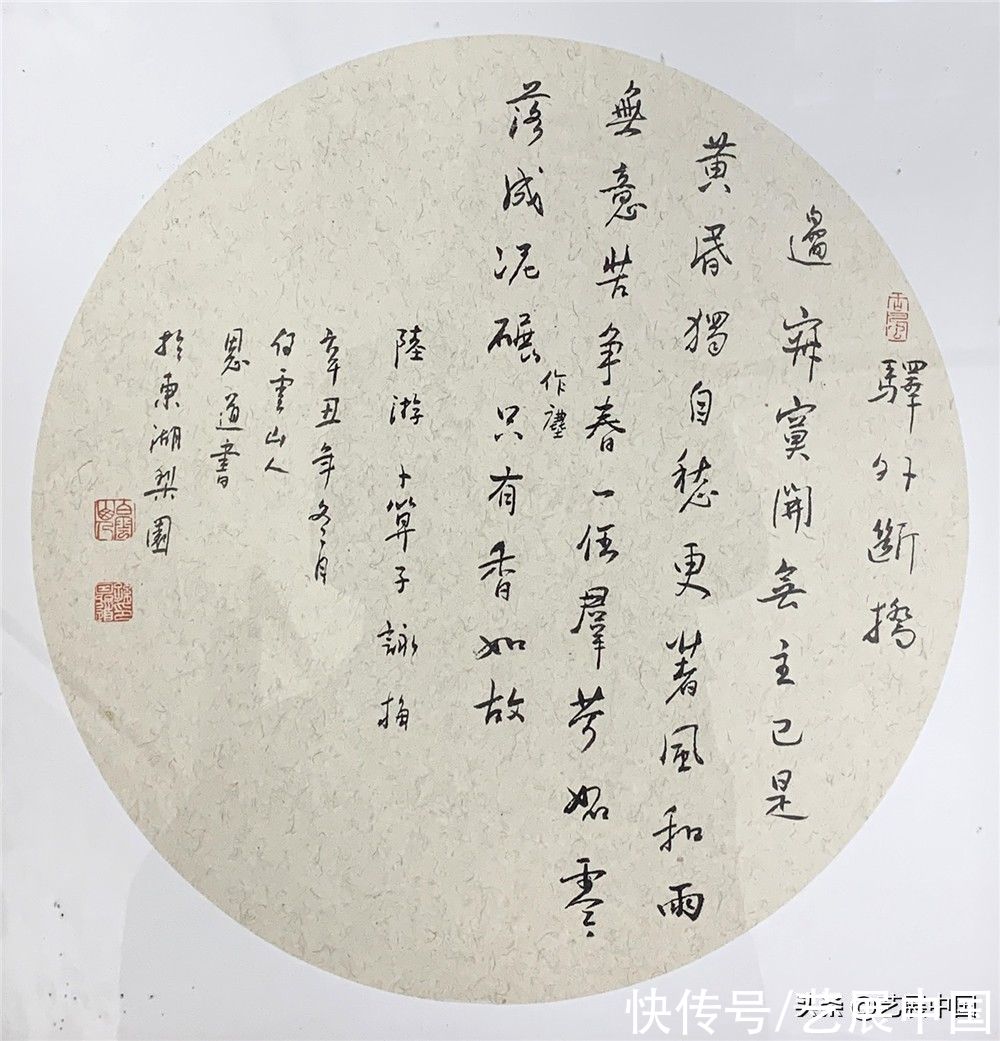 驛外斷橋
邊寂寞開無主已是
黄昏獨自愁更著風和雨
無意苦争春一任羣芳妬零
落成泥碾只有香如故
作塵
陸游卜算子詠梅
辛丑年冬月
白雲山人
恩道書
於東湖梨園
头条 @艺展中国
快传号/艺展中国